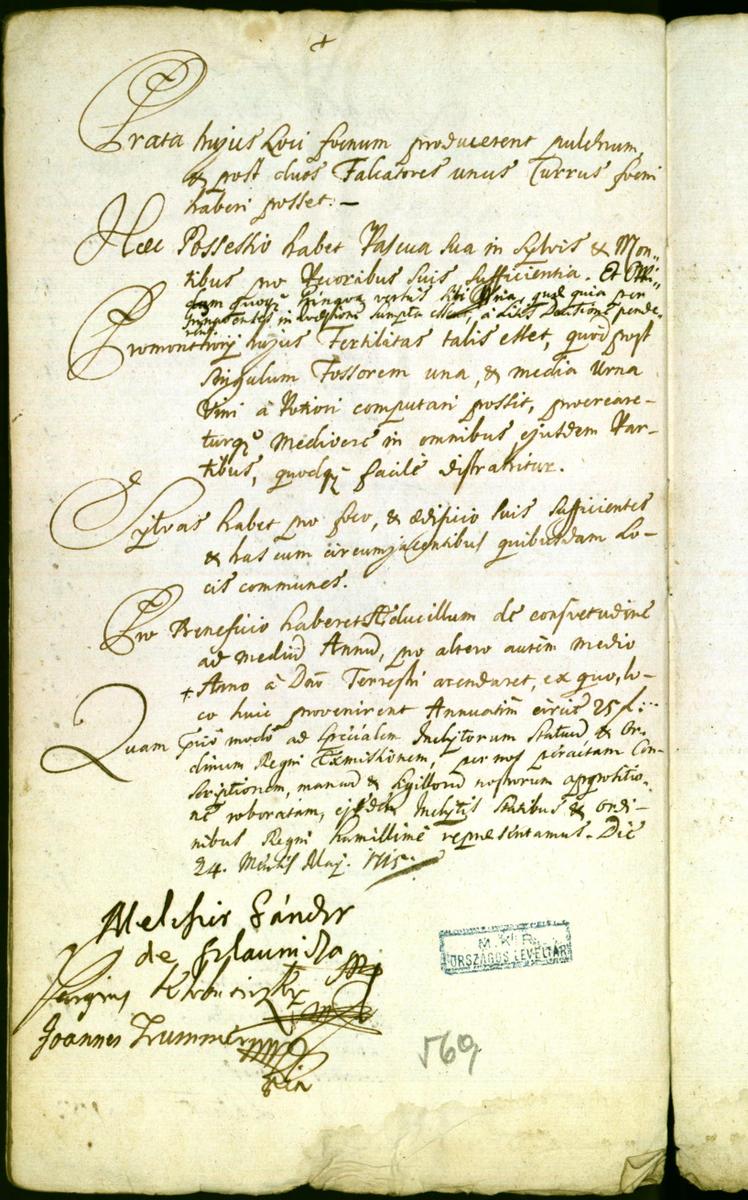 Prata hujus Loci foenum producerent pulchrum
& post duos Falcatores unus Currus foeni
haberi posset: —
Haec Possessio habet Pascua sua in Sylvis & Mon-
tibus pro Pecoribus suis sufficientia. Et
quoq; versus quae quia per
in sumpta esset, à
Promonthorij hujus Fertilitas talis esset, quod post
singulum Fossorem una, & media Urna
Vini à Potiori computari possit, procreare-
turq; mediocre in omnibus ejusdem Par-
tibus, quodq; facilè distrahitur.
Sylvas habet pro foco, & aedificio suis sufficientes
& has cum circumjacentibus quibusdam Lo-
cis communes.
Pro Beneficio haberet Educillum de consvetudine
ad mediũ Annũ, pro altero autem medio
+ Anno à Dño Terrestri arendaret, ex quo, lo-
co huic provenirent Annuatim circa 25 f:
Quam modò ad specialem Inclytorum Statuũ & Or-
dinum Regni Exmissionem, per nos peractam Con-
scriptionem, manuũ & sigillorũ nostrorum appositio-
ne roboratam, ejsdem Inclytis Statibus & Ordi-
nibus Regni humillimè repraesentamus. Die
24. Mensis Maj. 1715.
Melchior Sándor
de Szlavnicza
Joannes Trummer
M. KIR.
ORSZÁGOS LEVÉLTÁR
569